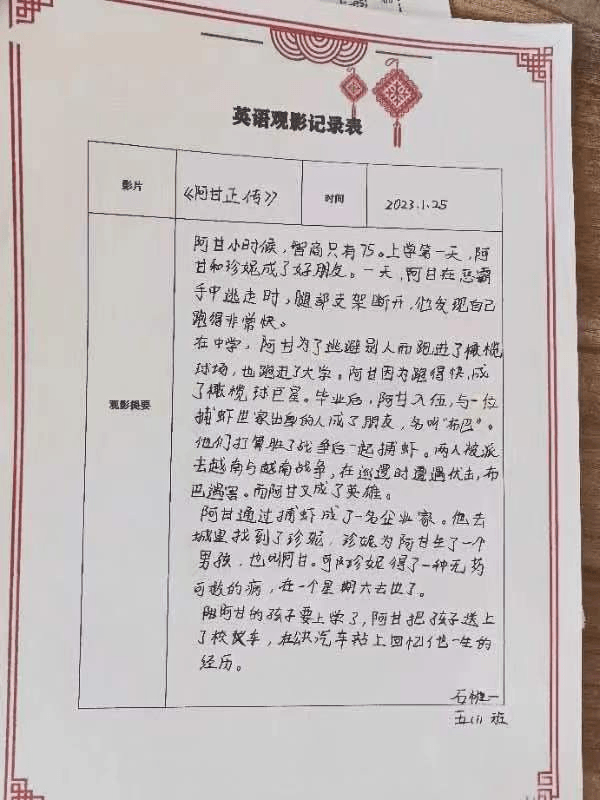 英语观影记录表
影片 《阿甘正传》 时间 2023.1.25
观影提要
阿甘小时候，智商只有75。上学第一天，阿
甘和珍妮成了好朋友。一天，阿甘在恶霸
手中逃走时，腿部支架断开，他发现自己
跑得非常快。
在中学，阿甘为了逃避别人而跑进了橄榄
球场，也跑进了大学。阿甘因为跑得快，成
了橄榄球巨星。毕业后，阿甘入伍，与一位
捕虾世家出身的人成了朋友，名叫“布巴”。
他们打算胜了战争后一起捕虾。两人被派
去越南与越南战争，在巡逻时遭遇伏击，布
巴遇害。而阿甘又成了英雄。
阿甘通过捕虾成了一名企业家。他去
城里找到了珍妮，珍妮为阿甘生了一个
男孩，也叫阿甘。可珍妮得了一种无药
可救的病，在一个星期六去世了。
阿甘的孩子要上学了，阿甘把孩子送上
了校车，在公共汽车站上回忆他一生的
经历。
石 一
五(1)班